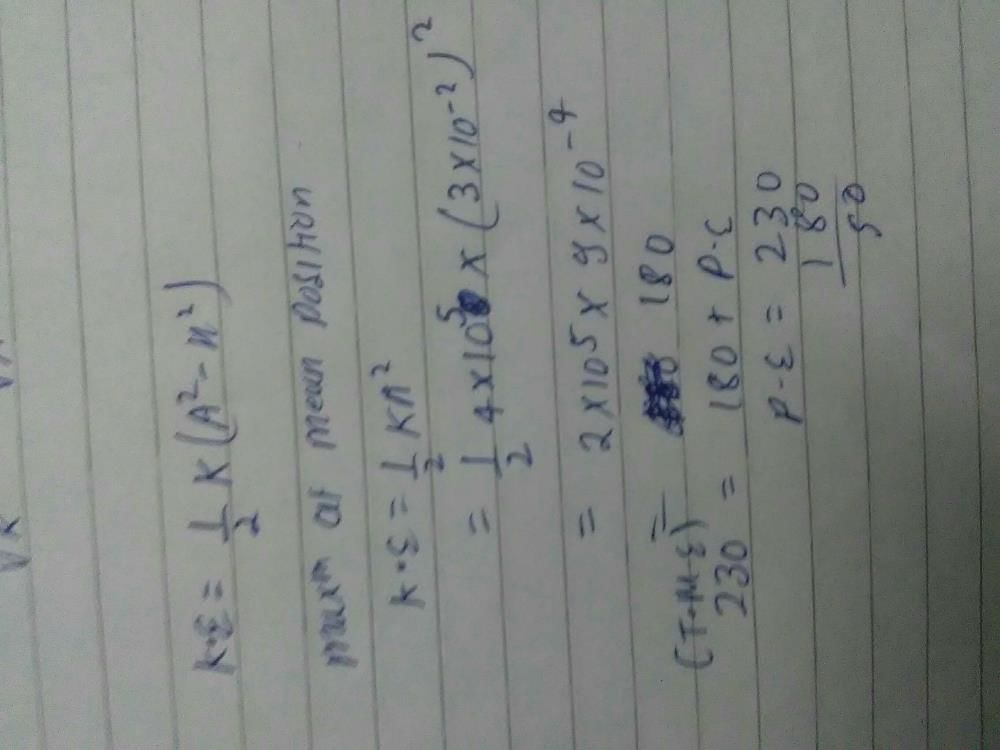 K·E = 1/2 K(A² - x²)
maxm at mean position
K·E = 1/2 KA²
= 1/2 4×10⁵ × (3×10⁻²)²
= 2×10⁵ × 9×10⁻⁴
= 180
(T·M·E)
230 = 180 + P·E
P·E = 230
180
50